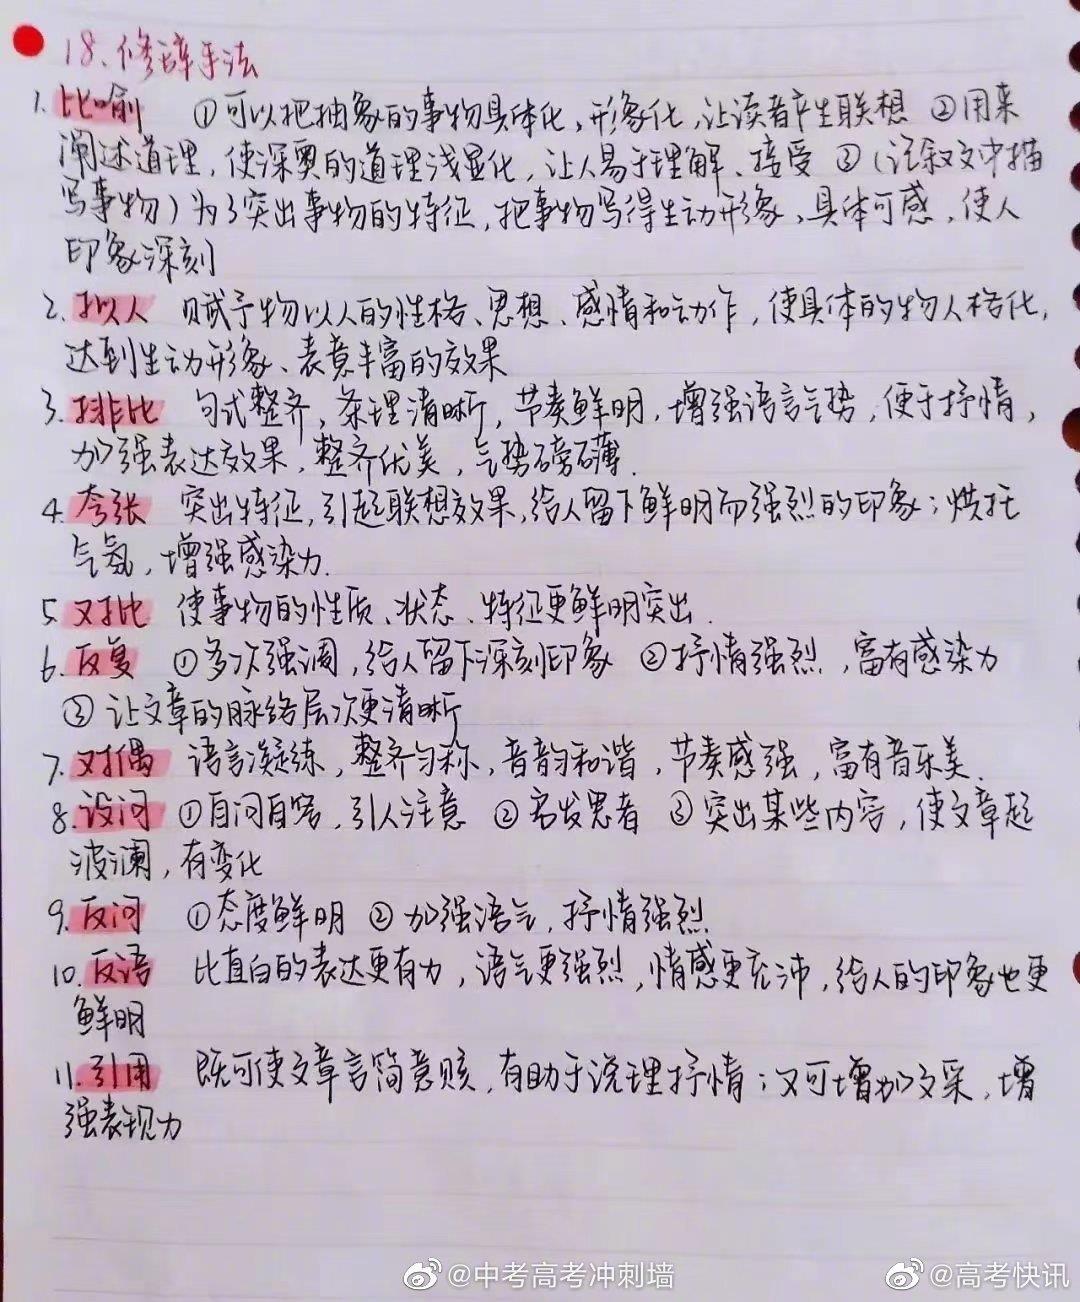 18、修辞手法
1. 比喻 ①可以把抽象的事物具体化,形象化,让读者产生联想 ②用来
阐述道理,使深奥的道理浅显化,让人易于理解、接受 ③(记叙文中描
写事物)为了突出事物的特征,把事物写得生动形象、具体可感,使人
印象深刻
2. 拟人 赋予物以人的性格、思想、感情和动作,使具体的物人格化,
达到生动形象、表意丰富的效果
3. 排比 句式整齐,条理清晰,节奏鲜明,增强语言气势,便于抒情,
加强表达效果,整齐优美,气势磅礴.
4. 夸张 突出特征,引起联想效果,给人留下鲜明而强烈的印象;烘托
气氛,增强感染力.
5 对比 使事物的性质、状态、特征更鲜明突出.
6. 反复 ①多次强调,给人留下深刻印象 ②抒情强烈,富有感染力
③让文章的脉络层次更清晰
7. 对偶 语言凝练,整齐匀称,音韵和谐,节奏感强,富有音乐美.
8. 设问 ①自问自答,引人注意 ②启发思考 ③突出某些内容,使文章起
波澜,有变化
9. 反问 ①态度鲜明 ②加强语气,抒情强烈
10. 反语 比直白的表达更有力,语气更强烈,情感更充沛,给人的印象也更
鲜明
11. 引用 既可使文章言简意赅,有助于说理抒情;又可增加文采,增
强表现力
@中考高考冲刺墙 @高考快讯